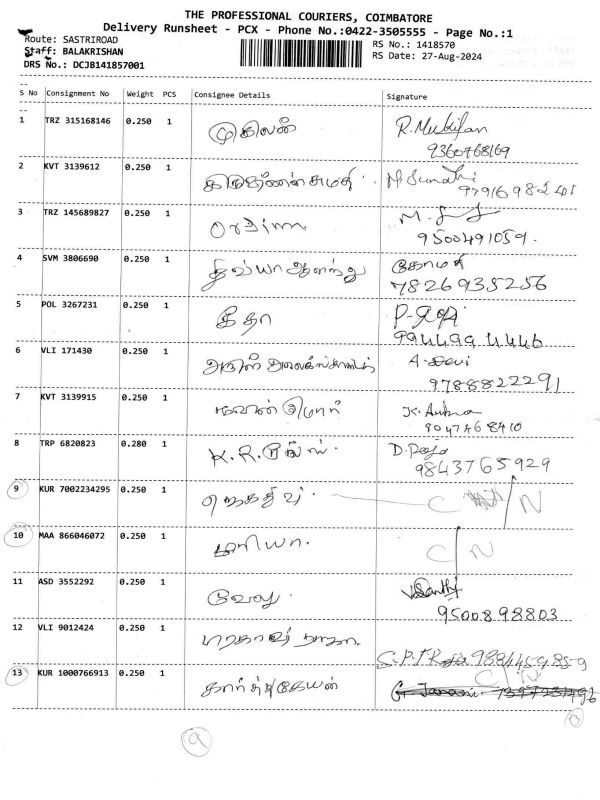 THE PROFESSIONAL COURIERS, COIMBATORE
Delivery Runsheet - PCX - Phone No.:0422-3505555 - Page No.:1
Route: SASTRIROAD
Staff: BALAKRISHAN
DRS No.: DCJB141857001
RS No.: 1418570
RS Date: 27-Aug-2024
S No Consignment No Weight PCS Consignee Details Signature
1 TRZ 315168146 0.250 1 முகிலன் R. Mukilan
9360768169
2 KVT 3139612 0.250 1
3 TRZ 145689827 0.250 1
9500491059.
4 SVM 3806690 0.250 1 திவ்யா ஆனந்து கோமதி
7826935256
5 POL 3267231 0.250 1 கீதா P. Gopi
9944994446
6 VLI 171430 0.250 1 A. Devi
9788822291
7 KVT 3139915 0.250 1
8047468410
8 TRP 6820823 0.280 1 K.R. D. Raja
9843765929
9 KUR 7002234295 0.250 1 C/N
10 MAA 866046072 0.250 1 மரியா. C/N
11 ASD 3552292 0.250 1 வேலு. Santhi
9500898803
12 VLI 9012424 0.250 1
13 KUR 1000766913 0.250 1 கார்த்திகேயன் C/N
9
B